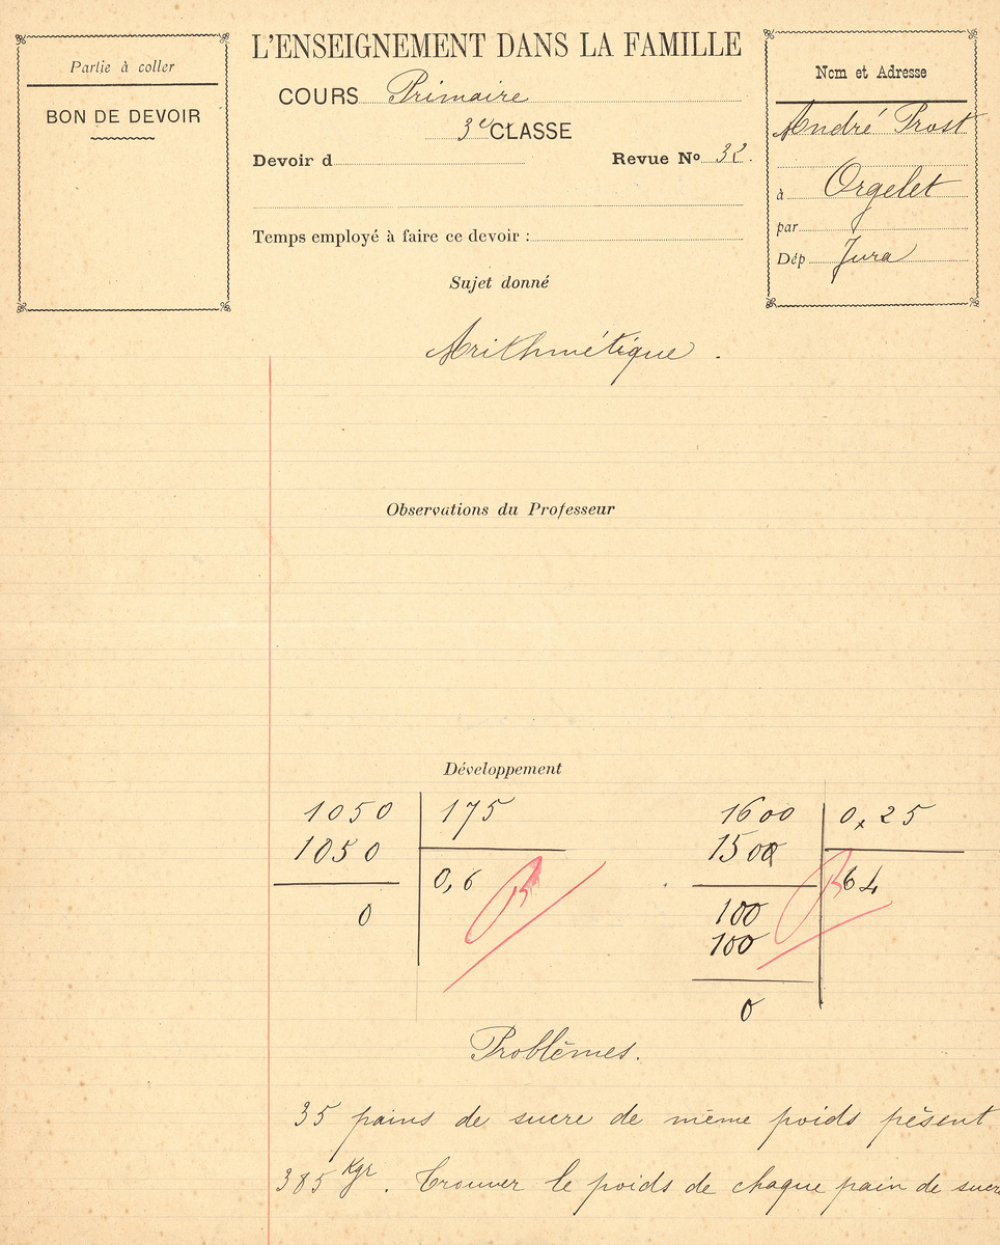 L'ENSEIGNEMENT DANS LA FAMILLE
Partie à coller
BON DE DEVOIR
COURS Primaire
3e CLASSE
Devoir d
Revue No 32.
Temps employé à faire ce devoir :
Nom et Adresse
André Prost
à Orgelet
par
Dép Jura
Sujet donné
Arithmétique.
Observations du Professeur
Développement
1050 175
1050
0,6
0
1600 0,25
1500
64
100
100
0
Problèmes.
35 pains de sucre de même poids pèsent
385 Kgr. Trouver le poids de chaque pain de sucr